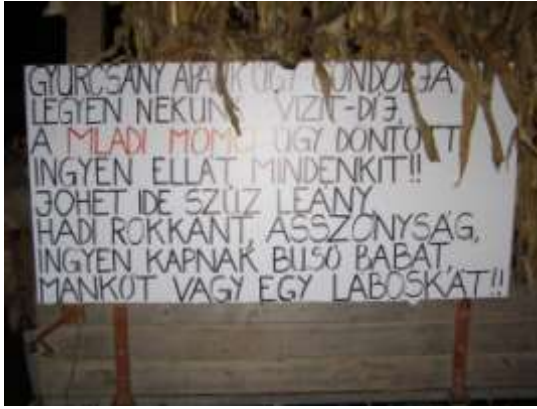 GYURCSÁNY APÁNK ÚGY GONDOLJA
LEGYEN NEKÜNK VIZIT-DÍJ,
A MLADI MOMCI ÚGY DÖNTÖTT
INGYEN ELLÁT MINDENKIT!!
JÖHET IDE SZŰZ LEÁNY,
HADI ROKKANT, ASSZONYSÁG,
INGYEN KAPNAK BUSÓ BABÁT,
MANKÓT VAGY EGY LÁBOSKÁT!!